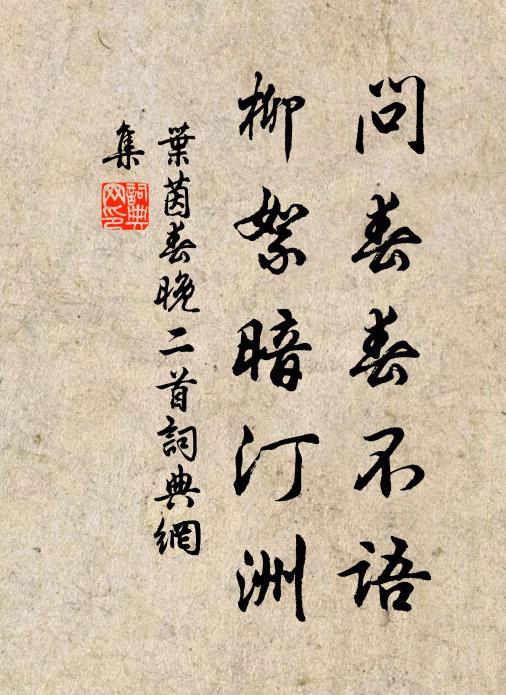 問春春不語
柳絮暗汀洲
葉茵春晚二首詞典網
集
詞典網印